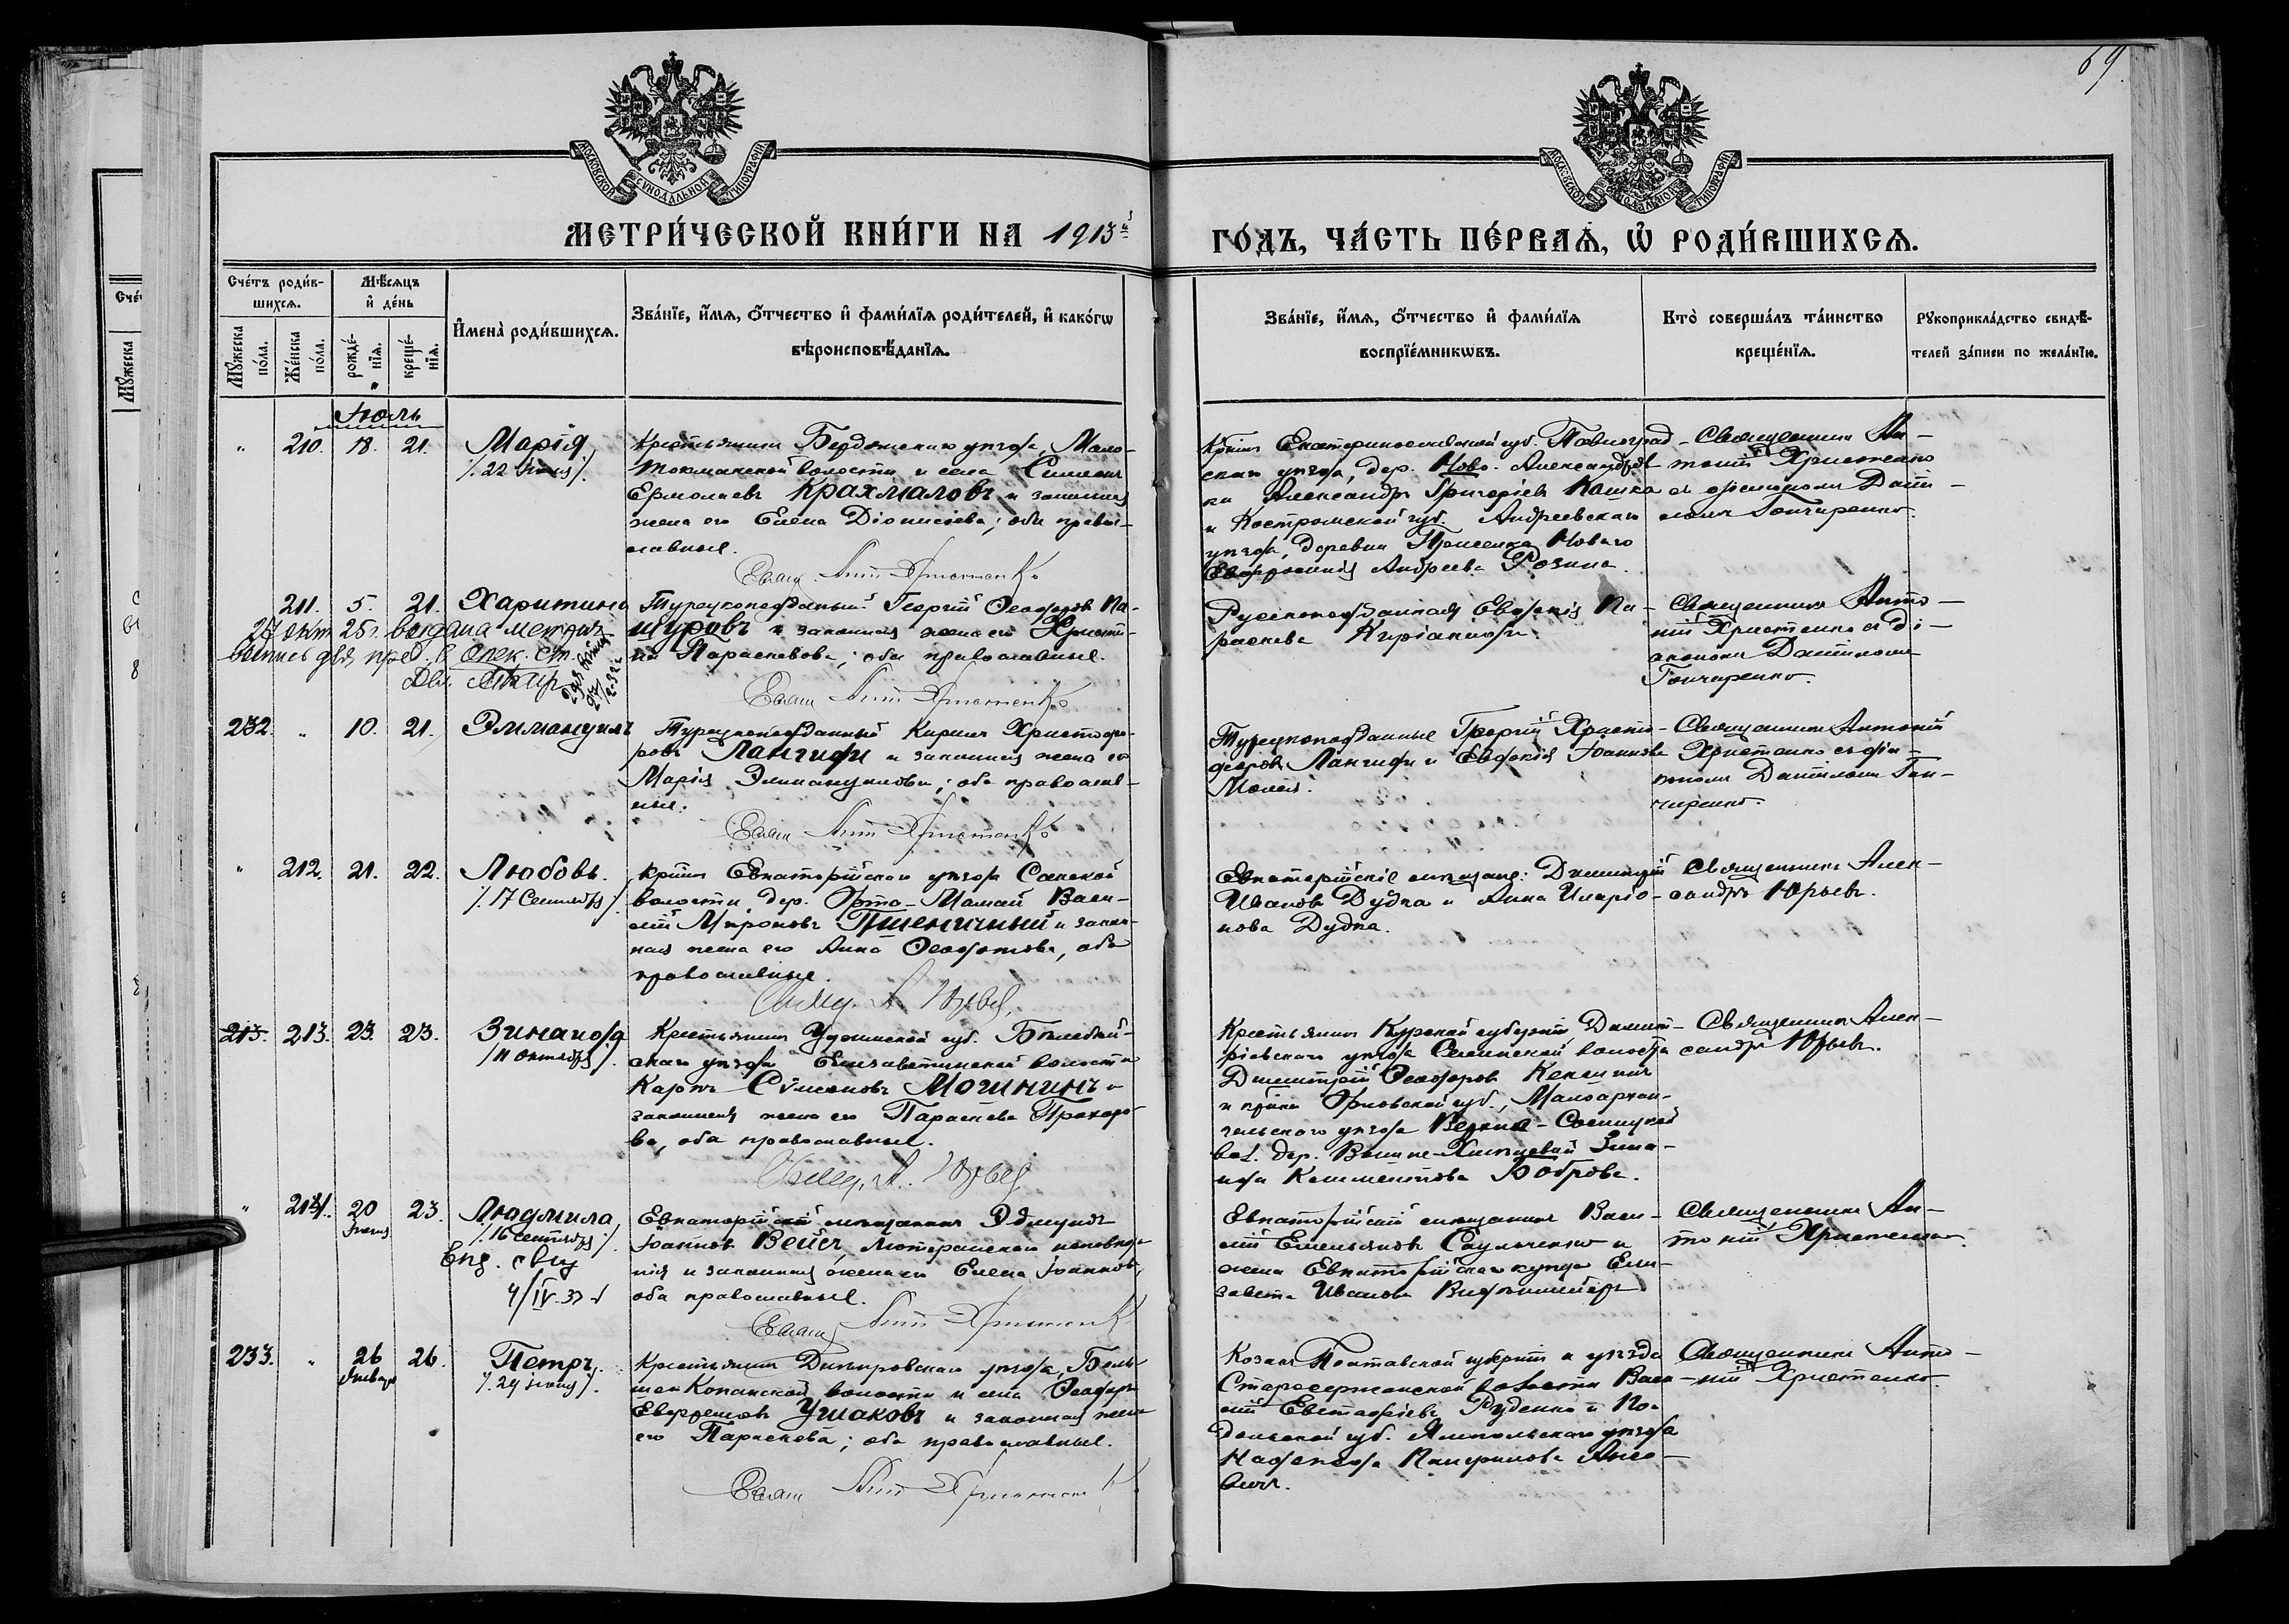 69
МОСКОВСКОЙ СѴНОДАЛЬНОЙ ТИПОГРАФІИ
МОСКОВСКОЙ СѴНОДАЛЬНОЙ ТИПОГРАФІИ
МЕТРИ́ЧЕСКОЙ КНИ́ГИ НА 1913й
ГО́ДЪ, ЧА́СТЬ ПЕ́РВАѦ, Ѡ҆ РОДИ́ВШИХСѦ.
Сче́тъ роди́в-
шихсѧ.
Мꙋ́жеска
по́ла.
Же́нска
по́ла.
Мѣ́сѧцъ
и҆ де́нь
рожде́-
нїѧ.
креще́-
нїѧ.
И҆мена̀ роди́вшихсѧ.
Зва́нїе, и҆́мѧ, ѻ҆́тчество и҆ фами́лїѧ роди́телей, и҆ како́гѡ
вѣроисповѣ́данїѧ.
Зва́нїе, и҆́мѧ, ѻ҆́тчество и҆ фами́лїѧ
воспрїе́мникѡвъ.
Кто̀ соверша́лъ та́инство
креще́нїѧ.
Рꙋкоприкла́дство свидѣ́-
телей за́писи по жела́нїю.
Іюль
" 210. 18. 21. Марія
/. 22 Іюля /.
Крестьянинъ Бердянскаго уѣзда, Мало-
Токмакской волости и села Симеонъ
Ермолаевъ Крахмаловъ и законная
жена его Елена Діонисіева; оба право-
славные.
Свящ. Ант Христенко
Крᷤтнинъ Екатеринославской губ. Павлоград-
скаго уѣзда, дер. Ново-Александров
ки Александръ Григоріевъ Кошка
и Костромской губ. Андреевскаго
уѣзда, деревни Новаго
Евфросинія Андреева Розина.
Священникъ Ан-
тоній Христенко
съ діакономъ Дани-
ломъ Гончаренко.
211. 5. 21. Харитина
27 окт 25г. выдана метрич.
выпись для пред. в опек. ст.
Турецкоподданый Георгій Ѳеодоровъ Па-
шуровъ и законная жена его Христи-
на Параскевова; оба православные.
Свящ Ант Христенко
Русскоподданная Евдокія Па-
раскева Киріакиди.
Священникъ Анто-
ній Христенко съ ді-
акономъ Даніиломъ
Гончаренко.
232. " 10. 21. Эммануилъ
Турецкоподданный Кириллъ Христофо-
ровъ Лангиди и законная жена его
Марія Эммануилова; оба православ-
ные.
Свящ Ант Христенко
Турецкоподданные Георгій Христо-
форовъ Лангиди и Евдокія Іоаннова
Священникъ Антоній
Христенко съ діа-
кономъ Даніиломъ Гон-
чаренко.
" 212. 21. 22. Любовь.
/. 17 Сентября /.
Крᷤтнинъ Евпаторійскаго уѣзда Сакской
волости, дер. Орта-Мамай Васи-
лій Мироновъ Пшеничный и закон-
ная жена его Анна Ѳеодотова, оба
православные.
Свящ. А. Юрьев.
Евпаторійскіе мѣщане: Димитрій
Ивановъ Дудка и Анна Иларіо-
нова Дудка.
Священникъ Алек-
сандръ Юрьевъ.
213. 213. 23. 23. Зинаида
/11 октября/.
Крестьянинъ губ.
скаго уѣзда Елизаветинской волости
Карпъ Сѵмеоновъ Мошнинъ и
законная жена его Параскева Прохоро-
ва, оба православные.
Свящ. А. Юрьев
Крестьянинъ Курской губерніи, Димит-
ріевскаго уѣзда волости
Димитрій Ѳеодоровъ
и крᷤтка Орловской губ., Малоархан-
гельскаго уѣзда Верхне-Сосницкой
вол. дер. Зина-
ида Климентова Боброва.
Священникъ Алек-
сандръ Юрьевъ.
" 214. 20 Іюня 23. Людмила,
/. 16 Сентября /.
4/IV. 37
Евпаторійскій мѣщанинъ Эдмундъ
Іоанновъ Вейсъ, лютеранскаго исповѣда-
нія и законная жена его Елена Іоаннова,
оба православные.
Свящ Ант Христенк
Евпаторійскій мѣщанинъ Васи-
лій Емельяновъ Саульченко и
жена Евпаторійскаго купца Ели-
завета Иванова
Священникъ Ан-
тоній Христенко.
233. " 26 Января 26. Петръ,
/. 29 іюня /.
Крестьянинъ Днѣпровскаго уѣзда, Боль-
ше Копанской волости и села Ѳеодоръ
Ушаковъ и законная жена
его Параскева; оба православные.
Свящ Ант Христенк
Козакъ Полтавской губерніи и уѣзда
Старосержанской волости Васи-
лій Евстафіевъ Руденко и По-
дольской губ. Ямпольскаго уѣзда
Надежда
Священникъ Анто-
ній Христенко.